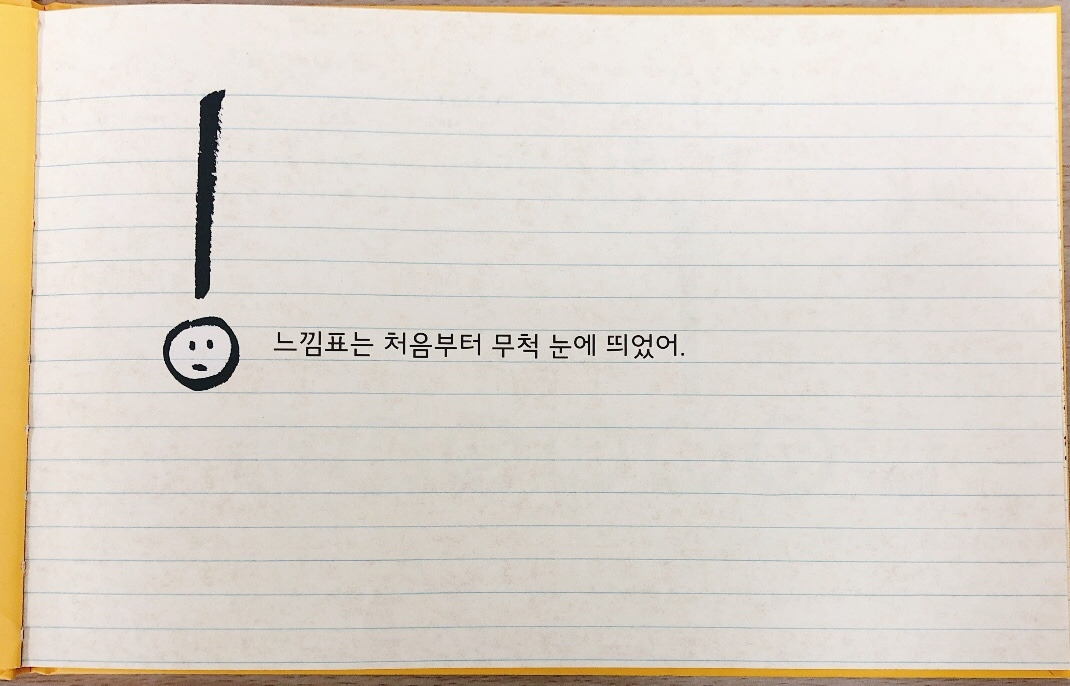 느낌표는 처음부터 무척 눈에 띄었어.